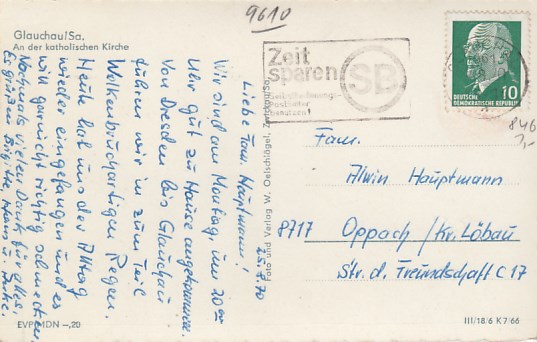 9610
Glauchau/Sa.
An der katholischen Kirche
Zeit
sparen
SB
Selbstbedienungs-
Postämter
benutzen!
DEUTSCHE
DEMOKRATISCHE REPUBLIK
10
846
1,-
25.8.70
Liebe Fam. Hauptmann!
Wir sind am Montag, um 20⁰⁰
Uhr gut zu Hause angekommen.
Von Dresden bis Glauchau
fuhren wir in zum Teil
Wolkenbruchartigen Regen.
Heute hat uns der Alltag
wieder eingefangen und es
will garnicht richtig schmecken.
Nochmals vielen Dank für alles,
Es grüßen Brigitte, Hans u. Heike.
Foto und Verlag W. Oetschlägel, Zwickau/Sa.
Fam.
Alwin Hauptmann
8717 Oppach/Kr. Löbau
Str. d. Freundschaft C 17
EVP MDN -,20
III/18/6 K 7/66